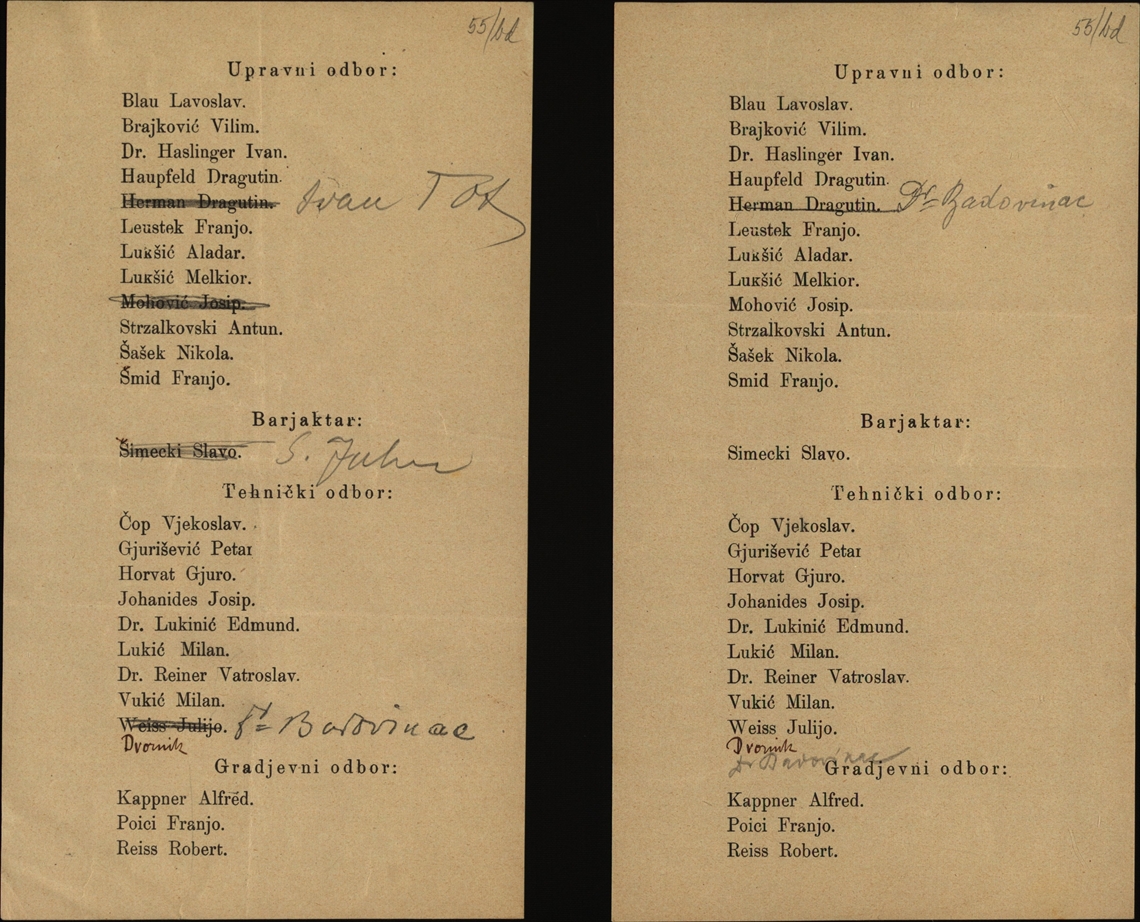 55/bd
Upravni odbor:
Blau Lavoslav.
Brajković Vilim.
Dr. Haslinger Ivan.
Haupfeld Dragutin.
Herman Dragutin. Ivan Tot
Leustek Franjo.
Lukšić Aladar.
Lukšić Melkior.
Mohović Josip.
Strzalkovski Antun.
Šašek Nikola.
Šmid Franjo.
Barjaktar:
Šimecki Slavo. S.
Tehnički odbor:
Čop Vjekoslav.
Gjurišević Petar
Horvat Gjuro.
Johanides Josip.
Dr. Lukinić Edmund.
Lukić Milan.
Dr. Reiner Vatroslav.
Vukić Milan.
Weiss Julijo. Dr Badovinac
Dvornik
Gradjevni odbor:
Kappner Alfred.
Poici Franjo.
Reiss Robert.
55/bd
Upravni odbor:
Blau Lavoslav.
Brajković Vilim.
Dr. Haslinger Ivan.
Haupfeld Dragutin.
Herman Dragutin. Dr Badovinac
Leustek Franjo.
Lukšić Aladar.
Lukšić Melkior.
Mohović Josip.
Strzalkovski Antun.
Šašek Nikola.
Smid Franjo.
Barjaktar:
Simecki Slavo.
Tehnički odbor:
Čop Vjekoslav.
Gjurišević Petar
Horvat Gjuro.
Johanides Josip.
Dr. Lukinić Edmund.
Lukić Milan.
Dr. Reiner Vatroslav.
Vukić Milan.
Weiss Julijo.
Dvornik
Dr Badovinac
Gradjevni odbor:
Kappner Alfred.
Poici Franjo.
Reiss Robert.